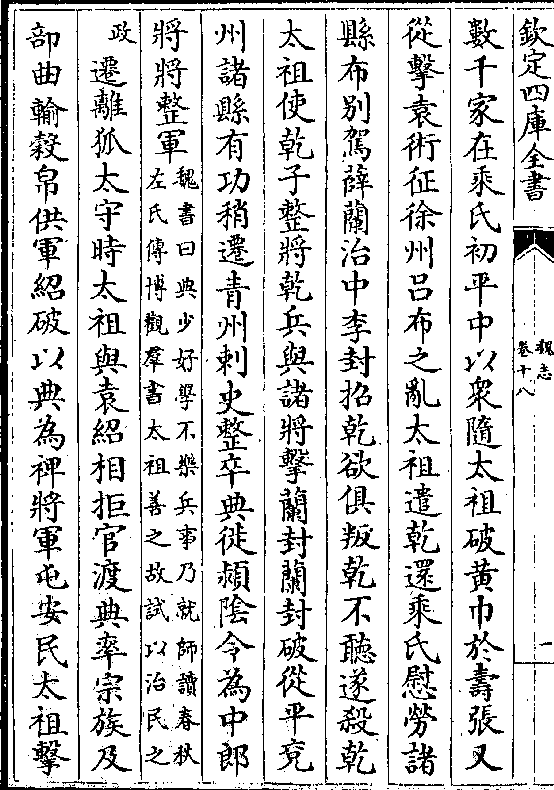 欽定四庫全書
魏志
卷十八
一
數千家在乘氏初平中以衆隨太祖破黄巾於壽張又
從擊袁術征徐州吕布之亂太祖遣乾還乘氏慰勞諸
縣布别駕薛蘭治中李封招乾欲俱叛乾不聽遂殺乾
太祖使乾子整將乾兵與諸將擊蘭封蘭封破從平兖
州諸縣有功稍遷青州刺史整卒典徙潁隂令為中郎
將將整軍
魏書曰典少好學不樂兵事乃就師讀春秋
左氏傳博觀羣書太祖善之故試以治民之
政
遷離狐太守時太祖與袁紹相拒官渡典率宗族及
部曲輸穀帛供軍紹破以典為裨將軍屯安民太祖擊